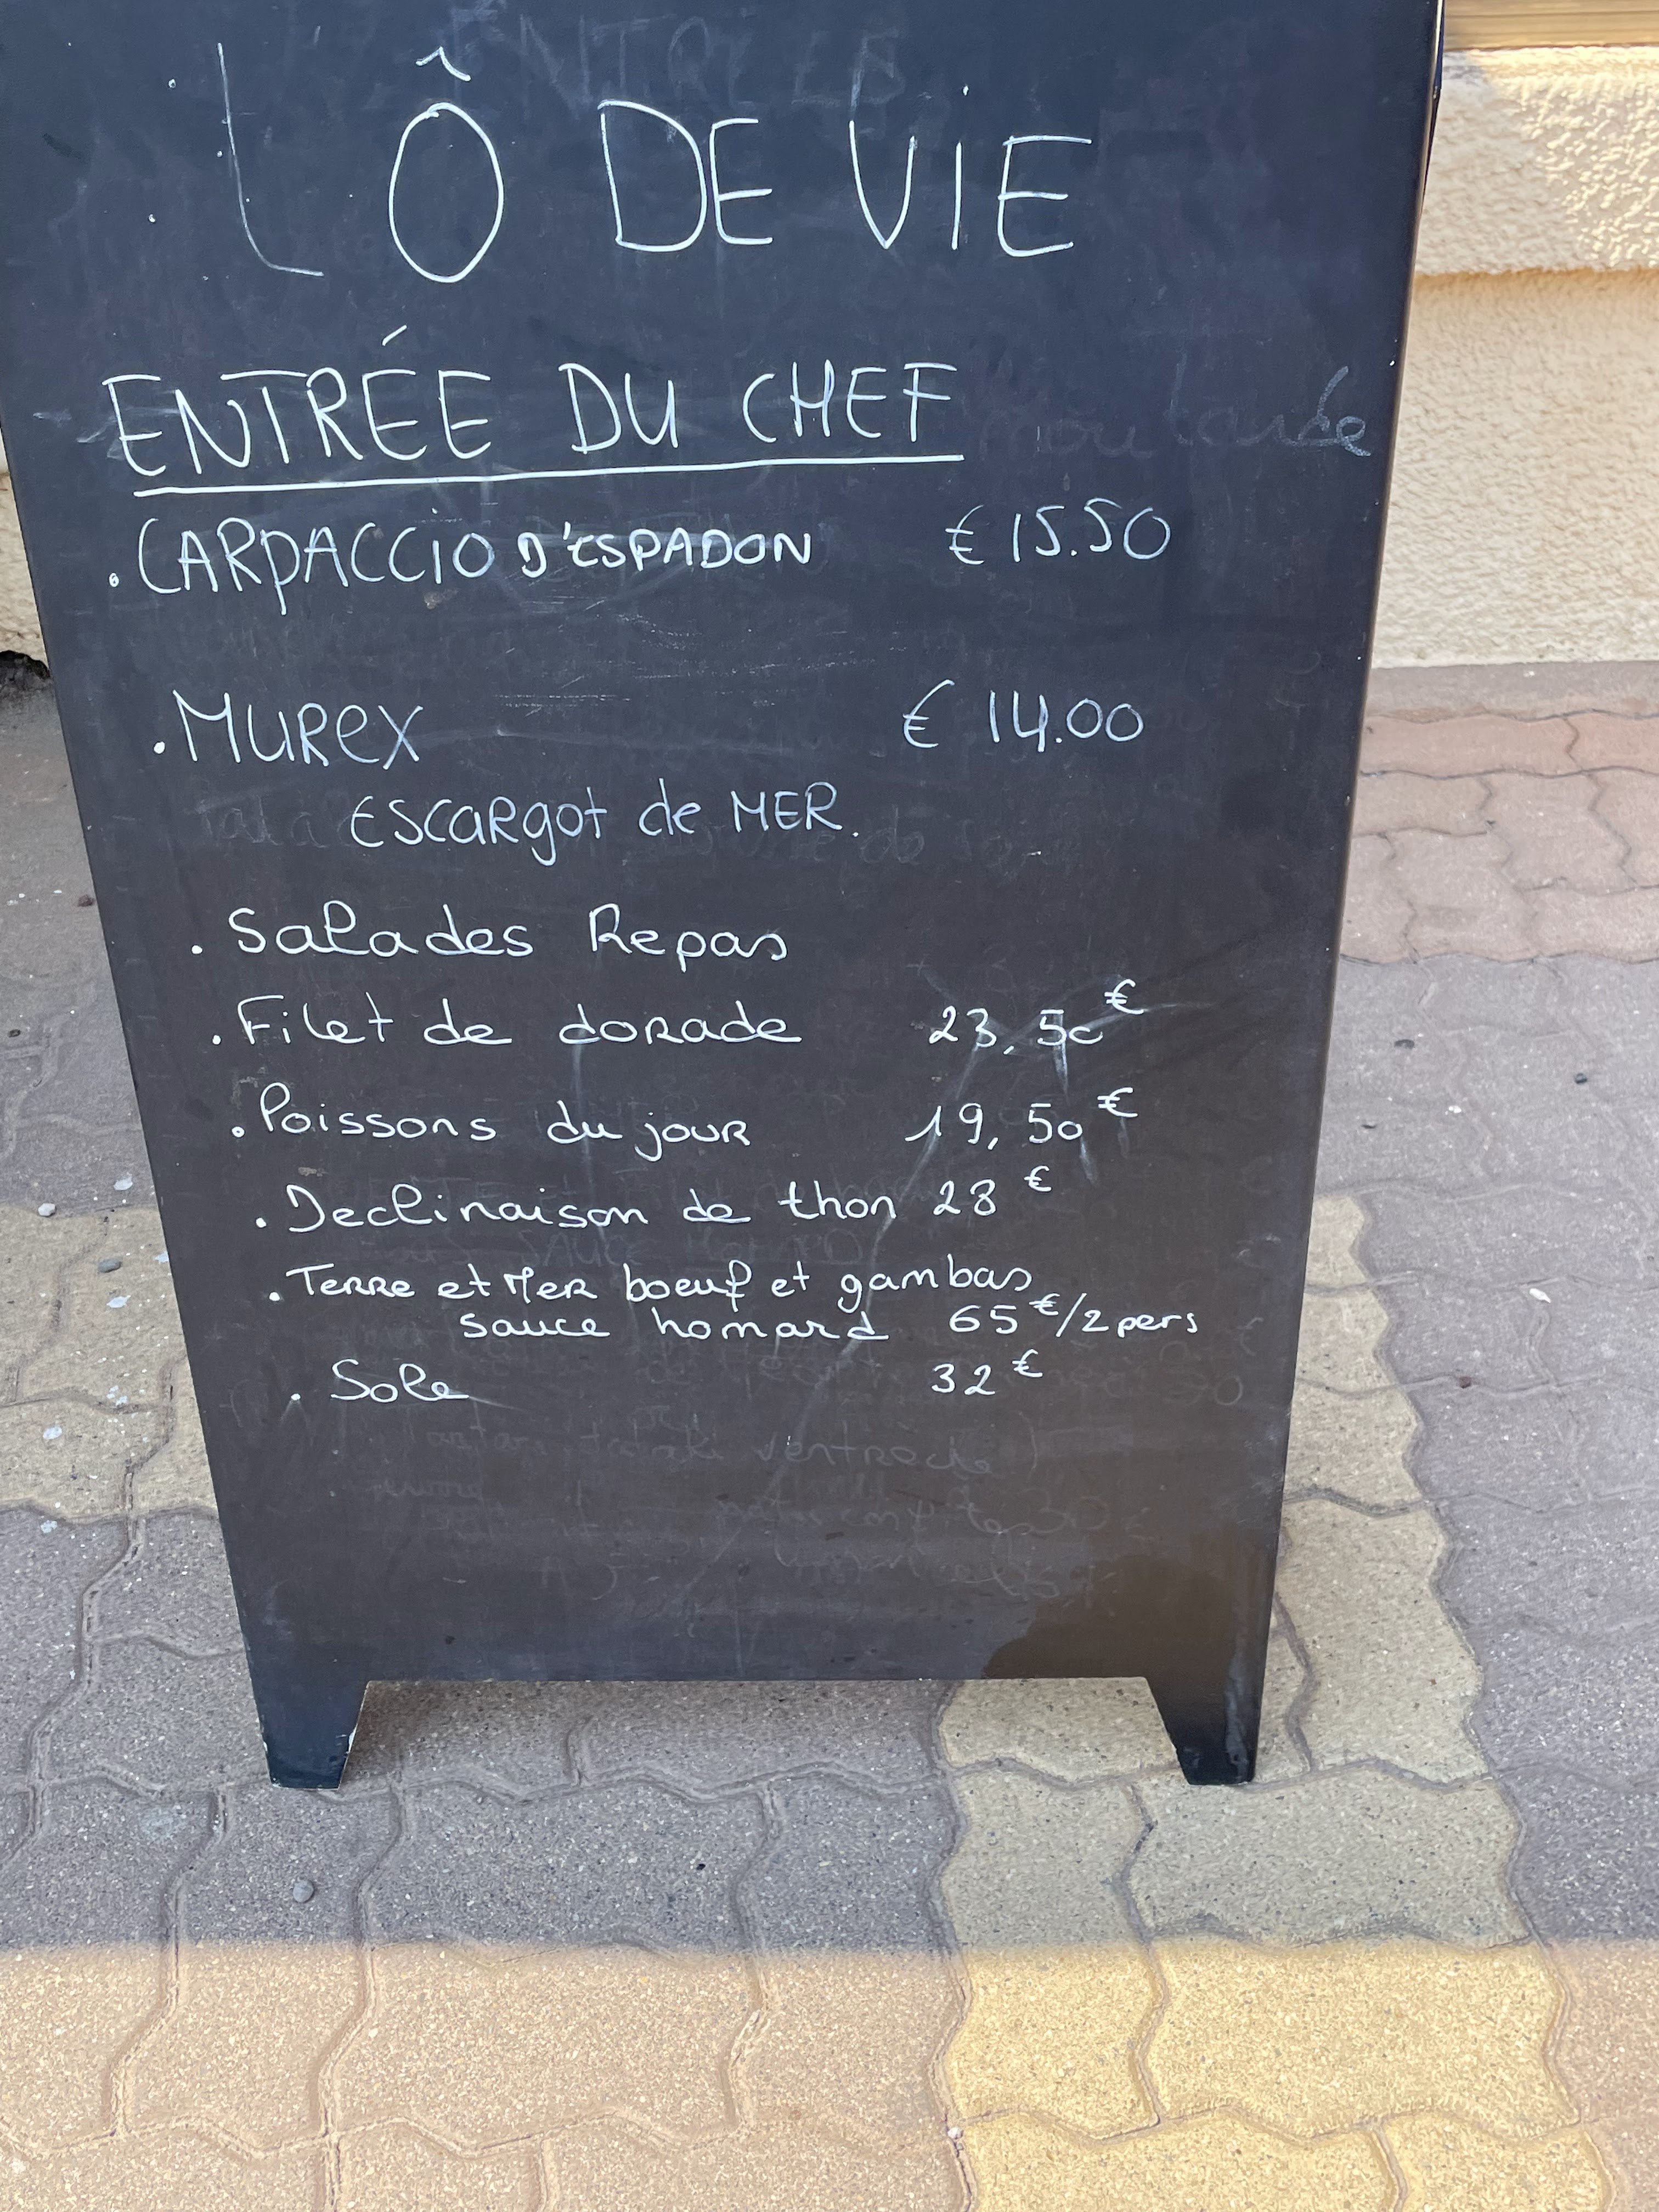 L Ô DE VIE
ENTRÉE DU CHEF
. CARPACCIO D'ESPADON € 15.50
. MUREX € 14.00
ESCARGOT de MER.
. Salades Repas
. Filet de dorade 23,50 €
. Poissons du jour 19,50 €
. Declinaison de thon 28 €
. Terre et Mer boeuf et gambas
sauce homard 65 €/2 pers
. Sole 32 €